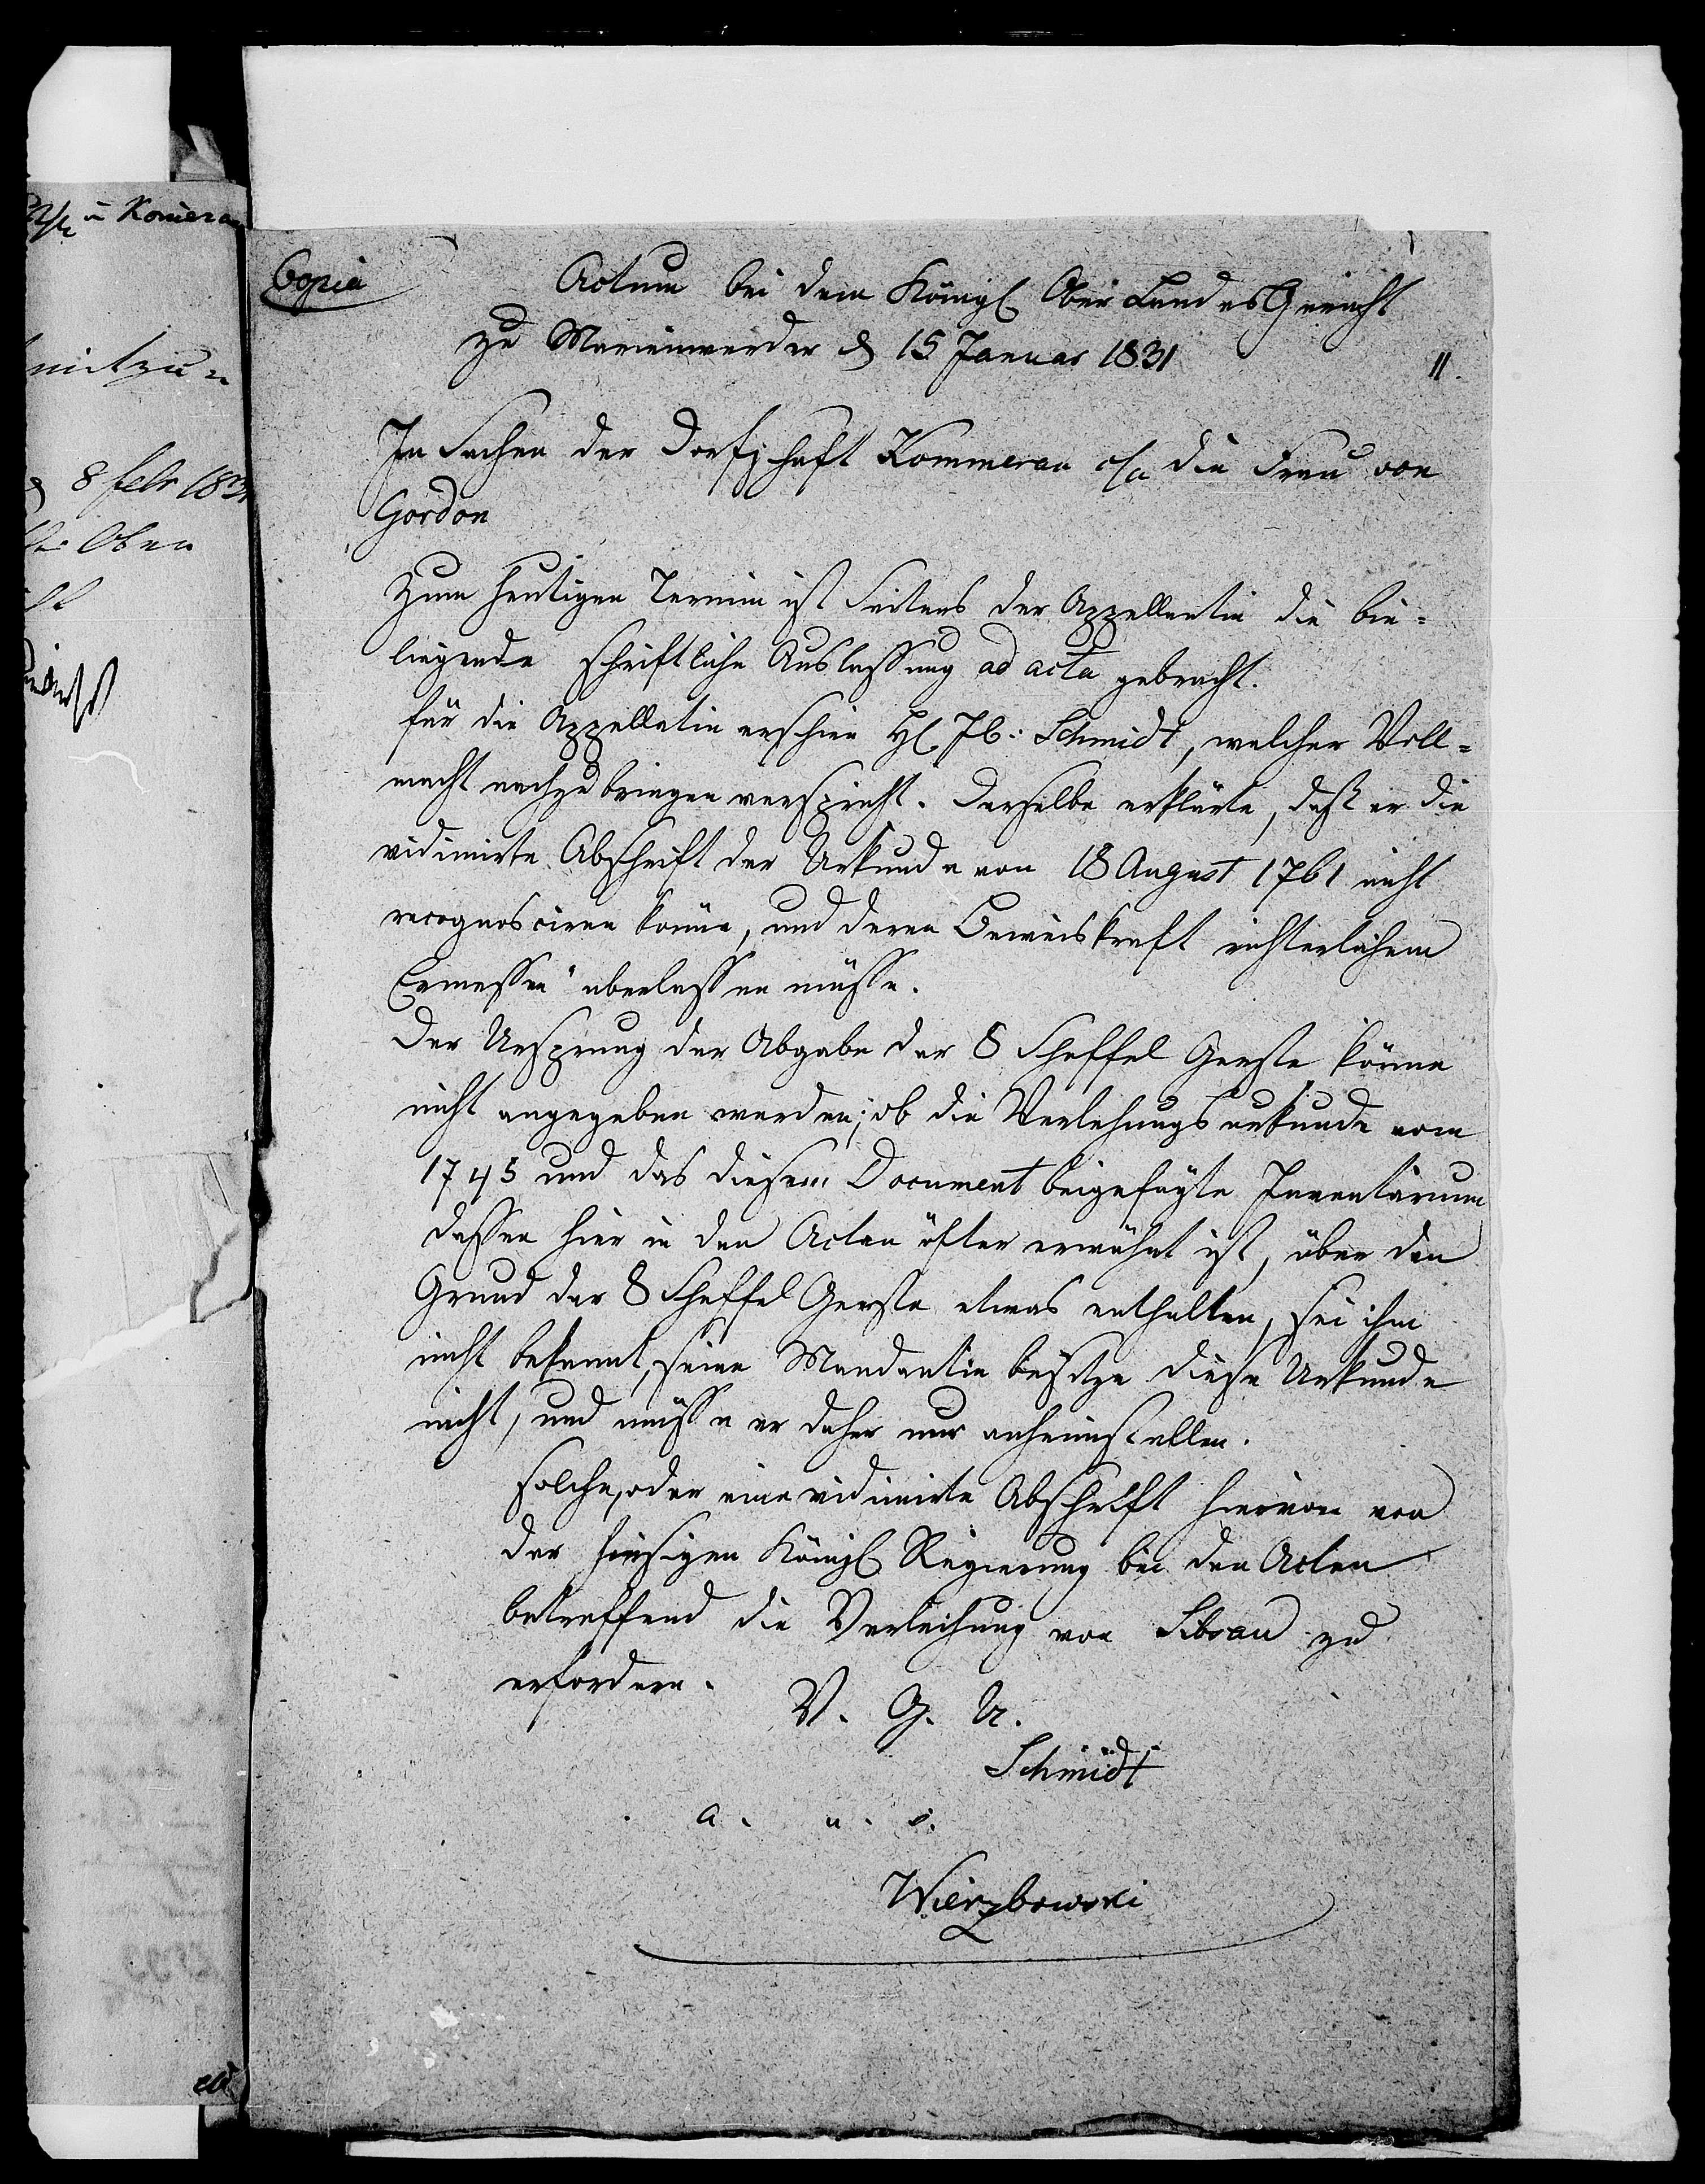 Copia
Actum bei dem Königl Ober Landes Gericht
zu Marienwerder d 15 Januar 1831
11
In Sachen der Dorfschaft Kommerau c/a die Frau von
Gordon
Zum heutigen Termin ist Seitens der Appellantin die bei=
liegende schriftliche Auslassung ad acta gebracht.
für die Appellatin erschien H. JC: Schmidt, welcher Voll=
macht nachzubringen verspricht. Derselbe erklärte, daß er die
vidimirte Abschrift der Urkunde von 18 August 1761 nicht
recognosciren könne, und deren Beweiskraft richterlichem
Ermessen überlassen müsse.
Der Ursprung der Abgabe der 8 Scheffel Gerste könne
nicht angegeben werden; ob die Verleihungsurkunde vom
1745 und das diesem Document beigefügte Inventarium
dessen hier in den Acten öfter erwähnt ist, über den
Grund der 8 Scheffel Gerste etwas enthalten, sei ihm
nicht bekannt, seine Mandantin besitze diese Urkunde
nicht, und müsse er daher nur anheimstellen.
solche, oder eine vidimirte Abschrift hiervon von
der hiesigen Königl Regierung bei den Acten
betreffend die Verleihung von Sibrau zu
erfordern.
V. G. U.
Schmidt
a. u. s.
Wierzbowski
mitzu=
8 febr 1831
Ober